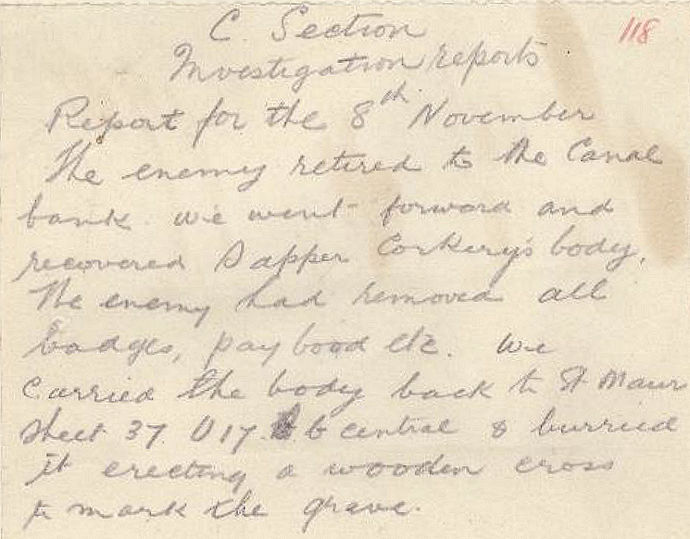 C. Section
118
Investigation reports
Report for the 8th November
The enemy retired to the Canal
bank. we went forward and
recovered Sapper Corkery's body.
The enemy had removed all
badges, pay bood etc. We
carried the body back to St Maur
Sheet 37. U 17. b central & burried
it erecting a wooden cross
to mark the grave.